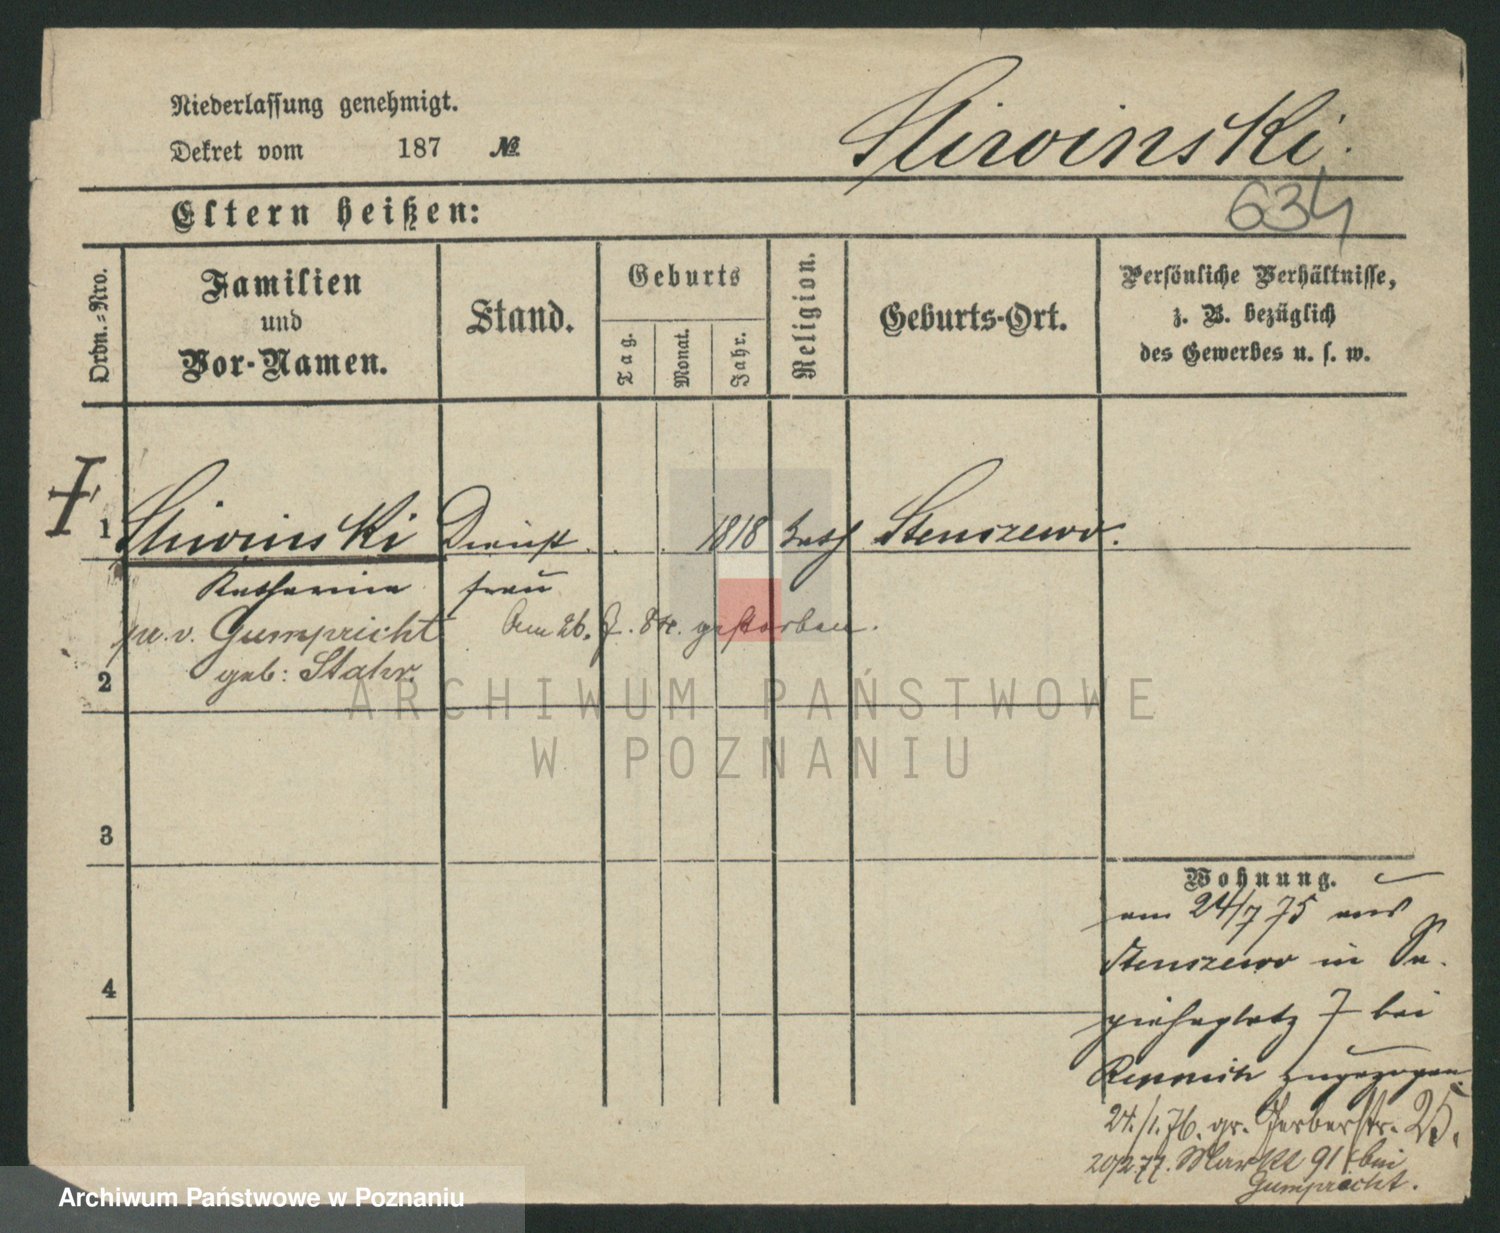 Niederlassung genehmigt.
Dekret vom 187 №
Stiwinski.
634
Eltern heißen:
Ordn.-Nro.
Familien
und
Vor-Namen.
Stand.
Geburts
Tag.
Monat.
Jahr.
Religion.
Geburts-Ort.
Persönliche Verhältnisse,
z. B. bezüglich
des Gewerbes u. s. w.
1 Stiwinski Dienst 1818 kath Stenszewo.
Katharina frau
Gumpricht Am 26. 84. gestorben.
geb: Stahr.
2
3
4
Wohnung.
am 24/7 75 aus
Stenszewo in Sa-
piehaplatz 7 bei
zugezogen
24./1.76. gr. Gerberstr. 25.
20/2.77. Markt 91 bei
Gumpricht.
ARCHIWUM PAŃSTWOWE
W POZNANIU
Archiwum Państwowe w Poznaniu